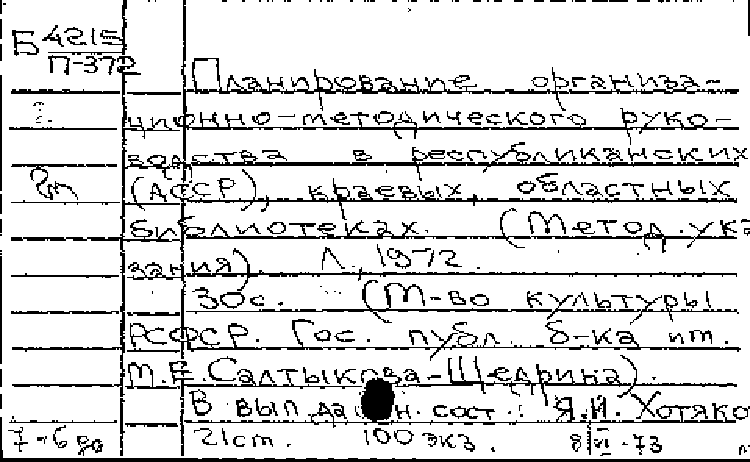 Б 4215
П-372
Планирование организа-
ционно-методического руко-
водства в республиканских
(АССР), краевых, областных
библиотеках. (Метод. ука
зания). Л., 1972.
30с. (М-во культуры
РСФСР. Гос. публ. б-ка им.
М.Е. Салтыкова-Щедрина).
В вып. дан. сост.: Я.И. Хотяко
21cm. 100 экз. 8/VI-73